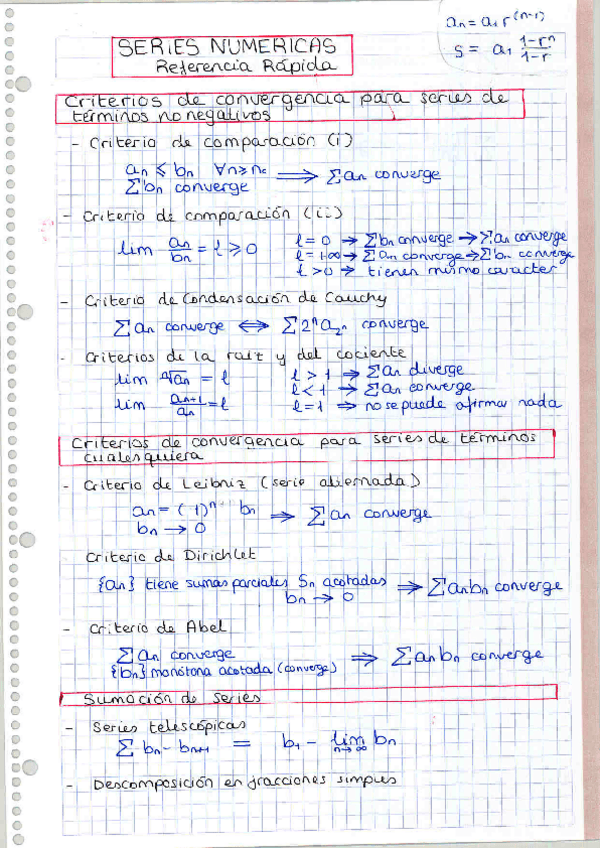 aₙ = a₁ r⁽ⁿ⁻¹⁾
S = a₁ (1-rⁿ)/(1-r)
SERIES NUMERICAS
Referencia Rápida
Criterios de convergencia para series de
términos no negativos
- Criterio de comparación (i)
aₙ ⩽ bₙ ∀n⩾n₀ ⟹ ∑aₙ converge
∑bₙ converge
- Criterio de comparación (ii)
lim aₙ/bₙ = l ⩾ 0
l = 0 → ∑bₙ converge → ∑aₙ converge
l = +∞ → ∑aₙ converge → ∑bₙ converge
l > 0 → tienen mismo caracter
- Criterio de Condensación de Cauchy
∑aₙ converge ⟺ ∑2ⁿa₂ₙ converge
- Criterios de la raíz y del cociente
lim ⁿ√aₙ = l
lim aₙ₊₁/aₙ = l
l > 1 → ∑aₙ diverge
l < 1 → ∑aₙ converge
l = 1 → no se puede afirmar nada
Criterios de convergencia para series de términos
cualesquiera
- Criterio de Leibniz (serie alternada)
aₙ = (1)ⁿ bₙ ⟹ ∑aₙ converge
bₙ → 0
Criterio de Dirichlet
{aₙ} tiene sumas parciales Sₙ acotadas ⟹ ∑aₙbₙ converge
bₙ → 0
- Criterio de Abel
∑aₙ converge
{bₙ} monótona acotada (converge) ⟹ ∑aₙbₙ converge
Sumación de series
- Series telescópicas
∑ bₙ - bₙ₊₁ = b₁ - lim n→∞ bₙ
- Descomposición en fracciones simples